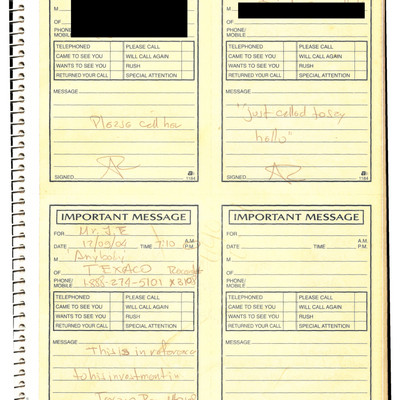 M
OF
PHONE/
MOBILE
TELEPHONED PLEASE CALL
CAME TO SEE YOU WILL CALL AGAIN
WANTS TO SEE YOU RUSH
RETURNED YOUR CALL SPECIAL ATTENTION
MESSAGE
Please call her
SIGNED
1184
M
OF
PHONE/
MOBILE
TELEPHONED PLEASE CALL
CAME TO SEE YOU WILL CALL AGAIN
WANTS TO SEE YOU RUSH
RETURNED YOUR CALL SPECIAL ATTENTION
MESSAGE
"just called to say
hello"
SIGNED
1184
IMPORTANT MESSAGE
FOR Mr. J.E
DATE TIME 7:10 A.M. P.M.
M Anybody
OF TEXACO
PHONE/
MOBILE 1-888-274-5101
TELEPHONED PLEASE CALL
CAME TO SEE YOU WILL CALL AGAIN
WANTS TO SEE YOU RUSH
RETURNED YOUR CALL SPECIAL ATTENTION
MESSAGE
This is in reference
to his investment in
IMPORTANT MESSAGE
FOR
DATE TIME A.M. P.M.
M
OF
PHONE/
MOBILE
TELEPHONED PLEASE CALL
CAME TO SEE YOU WILL CALL AGAIN
WANTS TO SEE YOU RUSH
RETURNED YOUR CALL SPECIAL ATTENTION
MESSAGE